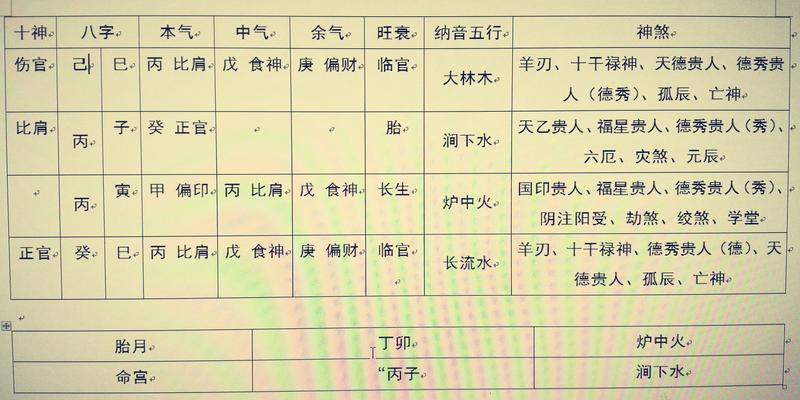 十神 八字 本气 中气 余气 旺衰 纳音五行 神煞
伤官 己 巳 丙 比肩 戊 食神 庚 偏财 临官 大林木 羊刃、十干禄神、天德贵人、德秀贵
人（德秀）、孤辰、亡神
比肩 丙 子 癸 正官 胎 涧下水 天乙贵人、福星贵人、德秀贵人（秀）、
六厄、灾煞、元辰
丙 寅 甲 偏印 丙 比肩 戊 食神 长生 炉中火 国印贵人、福星贵人、德秀贵人（秀）、
阴注阳受、劫煞、绞煞、学堂
正官 癸 巳 丙 比肩 戊 食神 庚 偏财 临官 长流水 羊刃、十干禄神、德秀贵人（德）、天
德贵人、孤辰、亡神
胎月 丁卯 炉中火
命宫 “丙子 涧下水